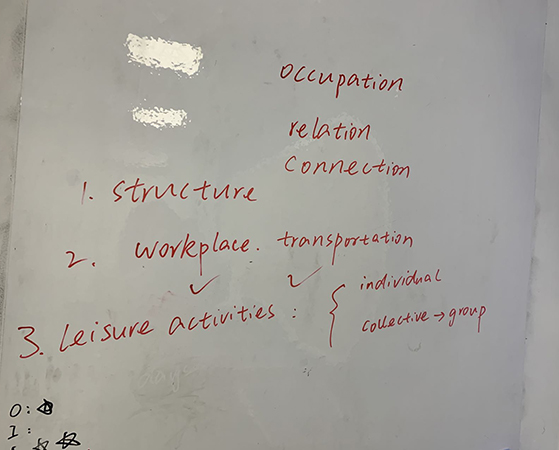 occupation
relation
connection
1. structure
2. workplace. transportation
3. Leisure activities : { individual
collective → group
0:
1: